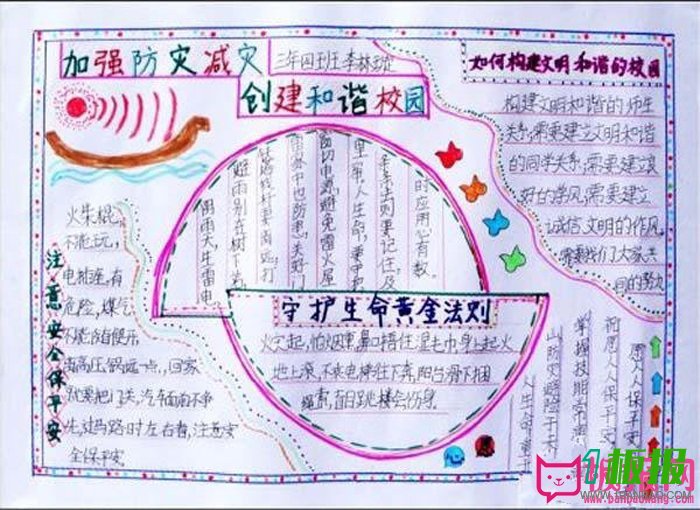 加强防灾减灾
三年四班 李林
创建和谐校园
如何构建文明和谐的校园
构建文明和谐的师生
关系,需要建立文明和谐
的同学关系,需要建立良
好的学风,需要建立
诚信文明的作风,
需要我们大家共
同的努力
阴雨天,生雷电,
避雨别在树下站,
打
家中也防电,关好门
窗切电源,避免雷火屋
里窜,人生命,重中
要记住,
时应用心有数。
守护生命黄金法则
火灾起,怕烟熏,鼻口捂住湿毛巾,身上起火
地上滚,不乘电梯往下奔,阳台滑下捆
绳索,盲目跳楼会伤身。
注意安全保平安
火柴棍,
不能玩,
电插座,有
危险,煤气
不能随便开,
离高压锅远一点,回家
就要把门关,汽车面前不争
先,过马路时左右看,注意安
全保平安
愿人人保平安
祝愿人人保平安
掌握技能常
人生命重于
板报网
www.banbaowang.com